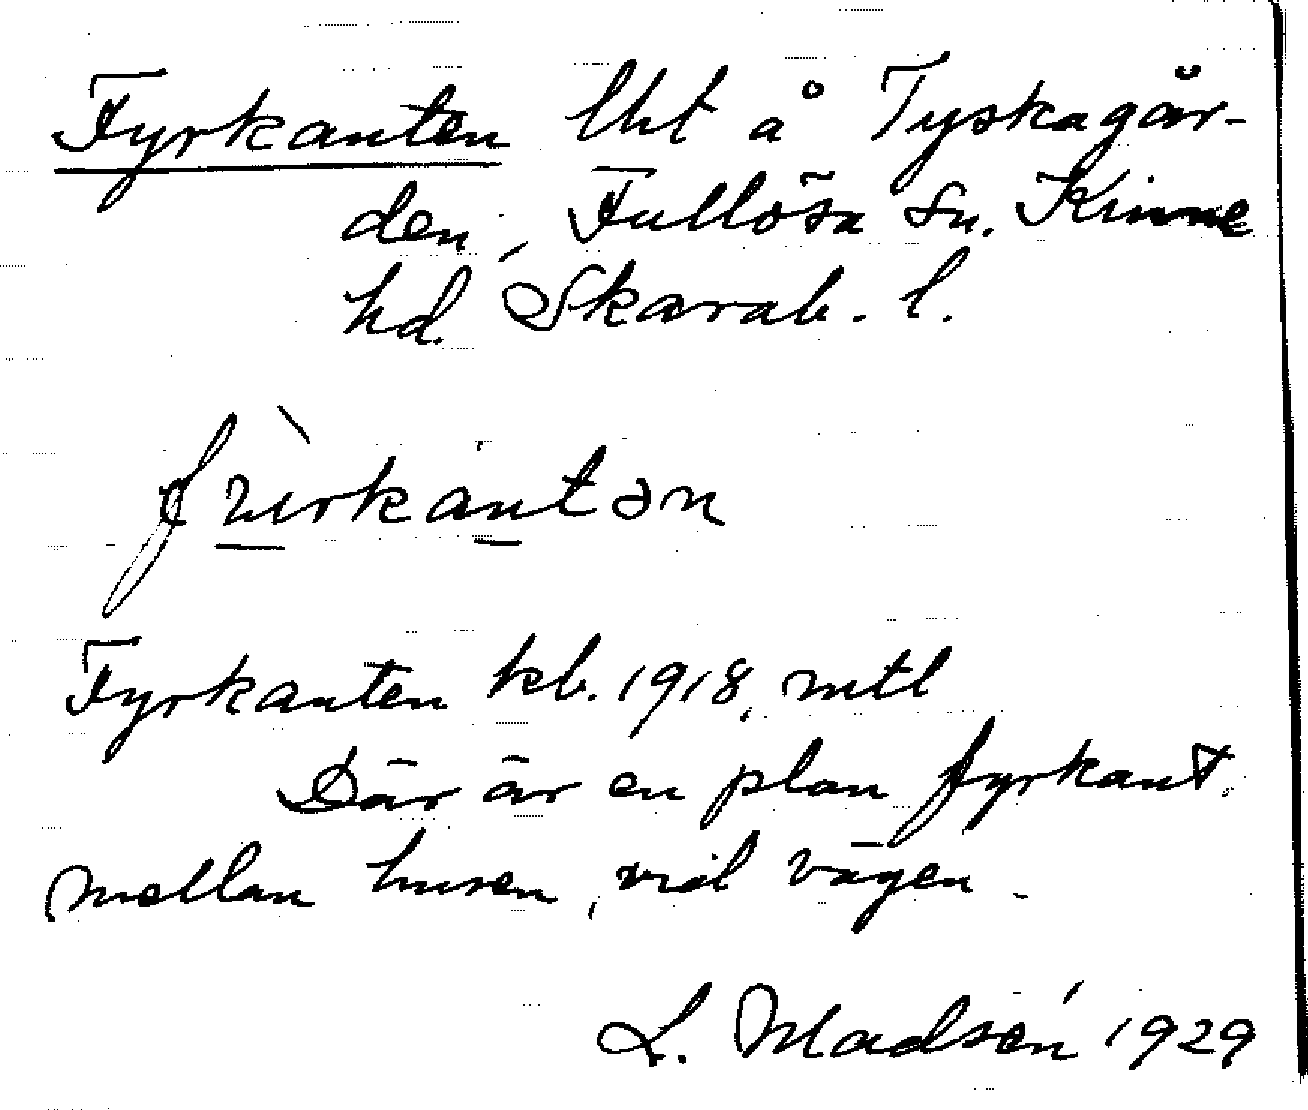 Fyrkanten lht å Tyskagår-
den, Fullösa sn. Kinne
hd. Skarab. l.
Fyrkanten kb. 1918, mtl
Där är en plan fyrkant
mellan husen, vid vägen.
L. Madsén 1929